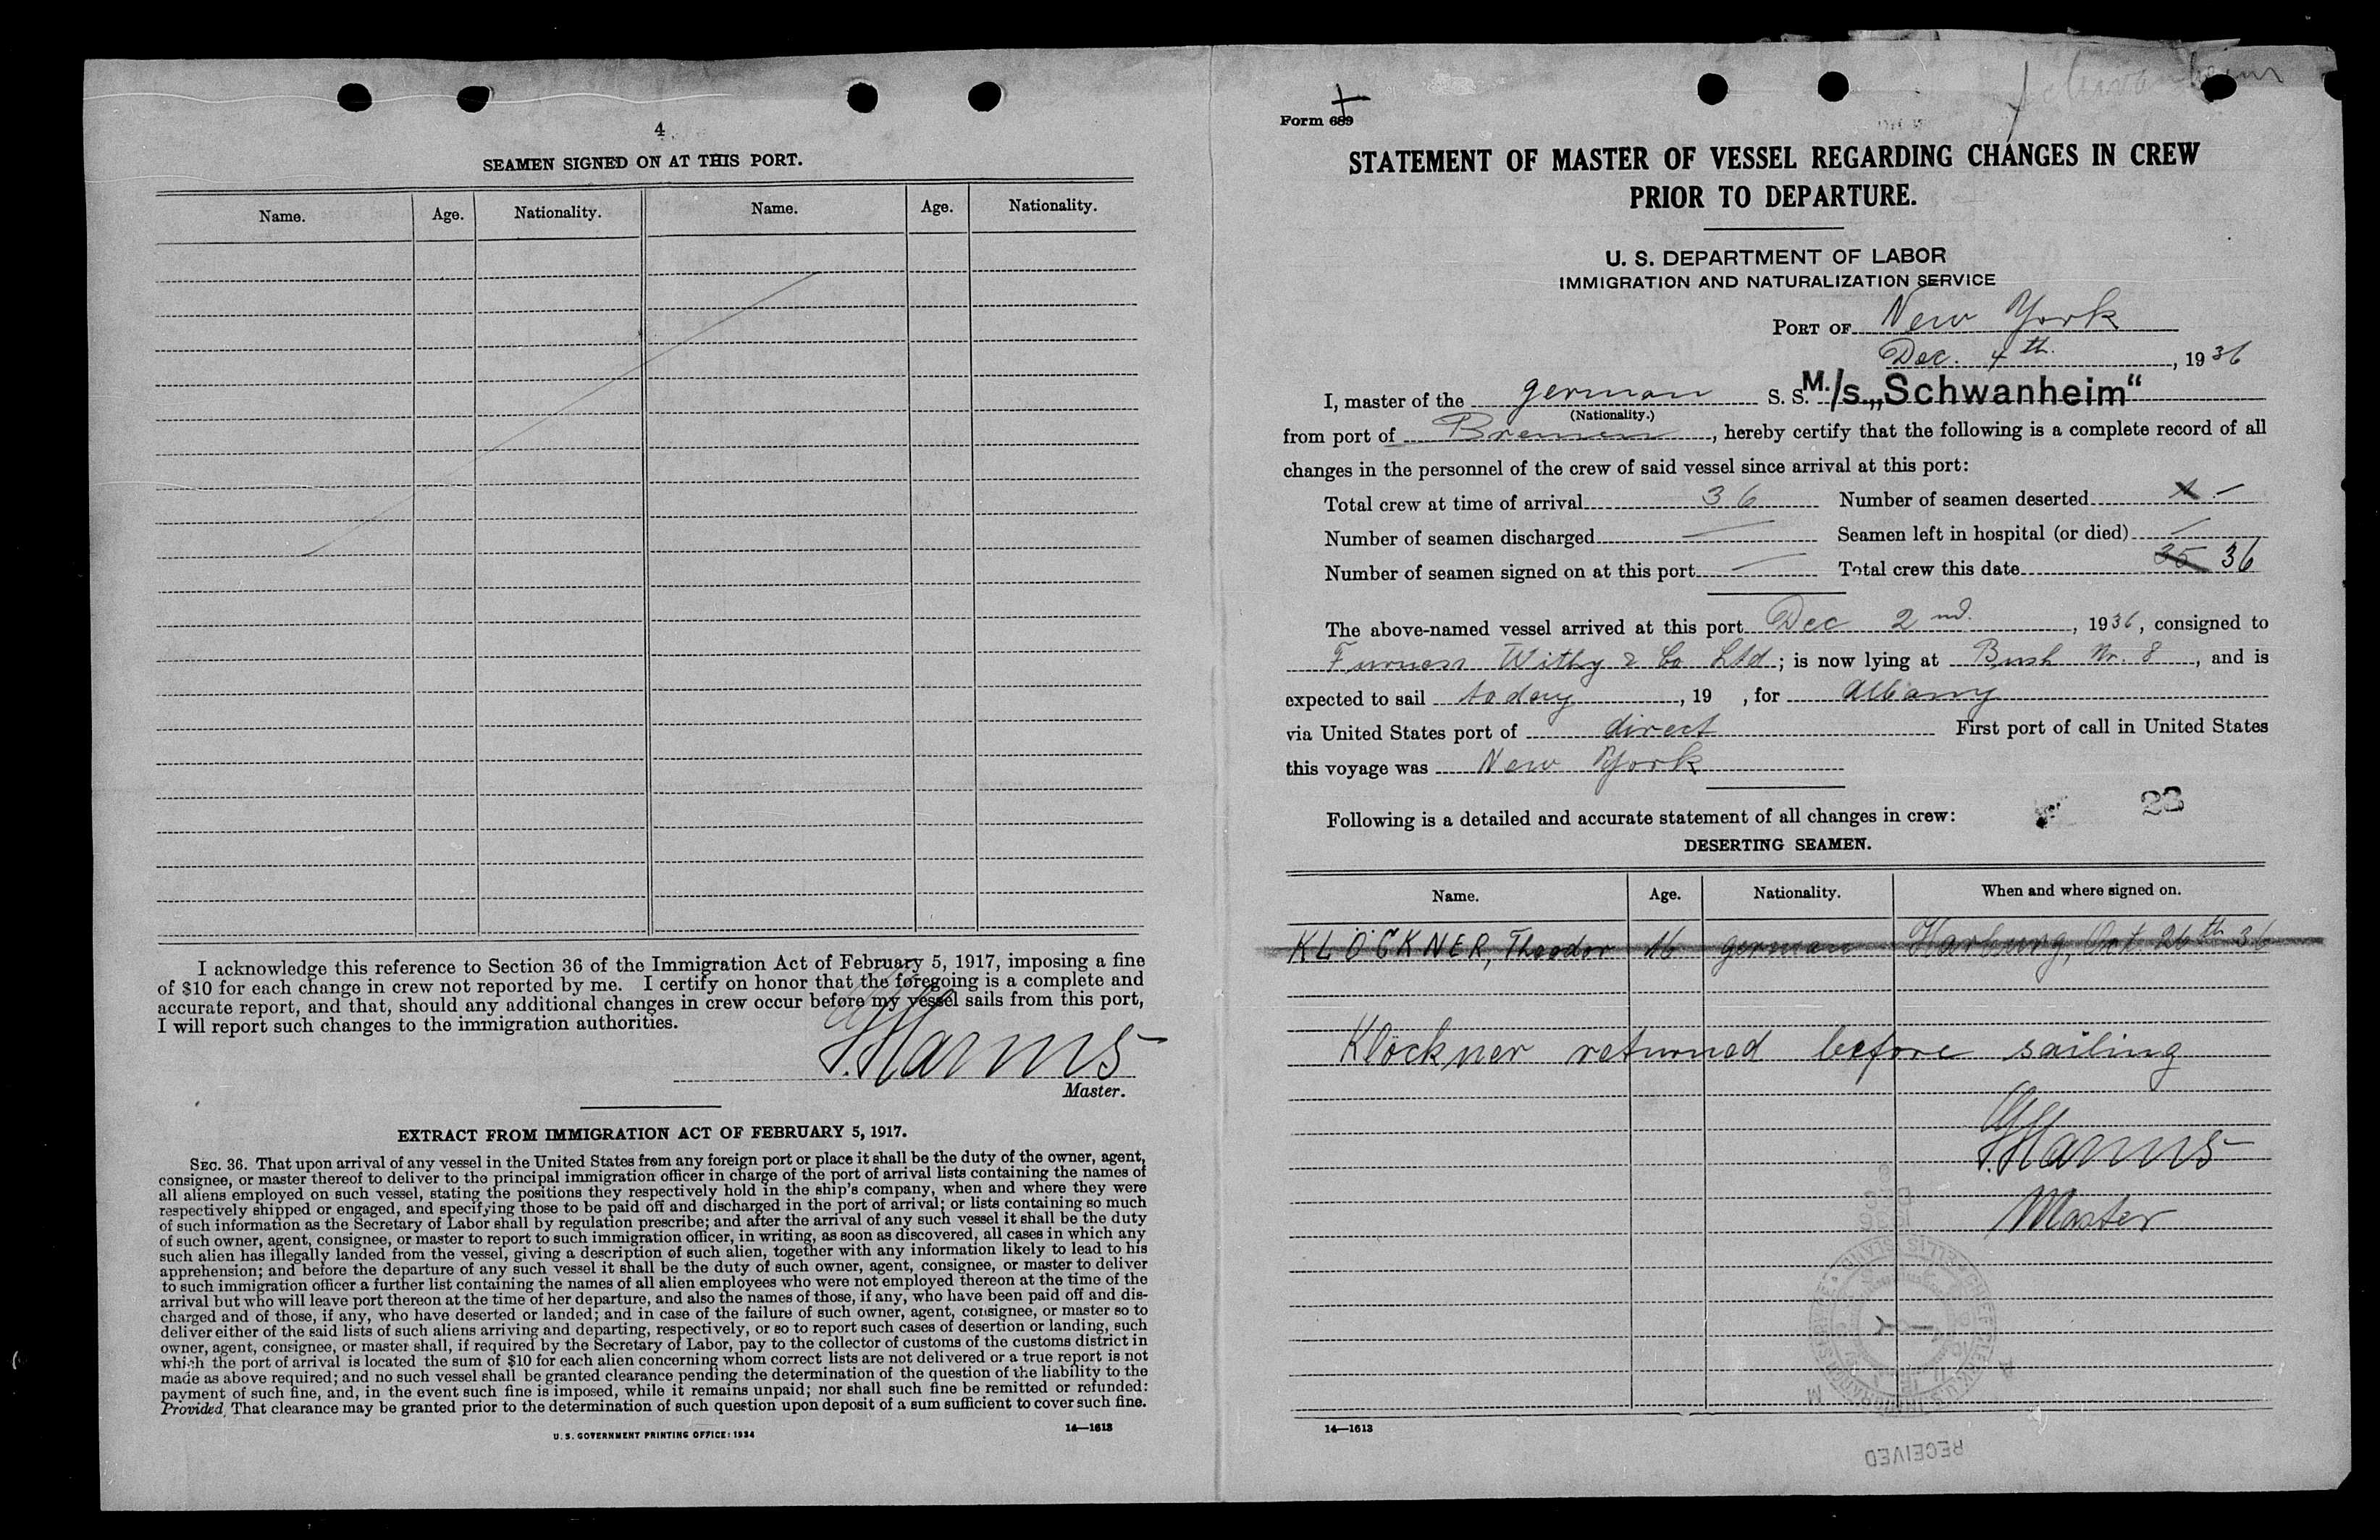 4
SEAMEN SIGNED ON AT THIS PORT.
Name. Age. Nationality. Name. Age. Nationality.
I acknowledge this reference to Section 36 of the Immigration Act of February 5, 1917, imposing a fine
of $10 for each change in crew not reported by me. I certify on honor that the foregoing is a complete and
accurate report, and that, should any additional changes in crew occur before my vessel sails from this port,
I will report such changes to the immigration authorities.
Harms
Master.
EXTRACT FROM IMMIGRATION ACT OF FEBRUARY 5, 1917.
SEC. 36. That upon arrival of any vessel in the United States from any foreign port or place it shall be the duty of the owner, agent,
consignee, or master thereof to deliver to the principal immigration officer in charge of the port of arrival lists containing the names of
all aliens employed on such vessel, stating the positions they respectively hold in the ship's company, when and where they were
respectively shipped or engaged, and specifying those to be paid off and discharged in the port of arrival; or lists containing so much
of such information as the Secretary of Labor shall by regulation prescribe; and after the arrival of any such vessel it shall be the duty
of such owner, agent, consignee, or master to report to such immigration officer, in writing, as soon as discovered, all cases in which any
such alien has illegally landed from the vessel, giving a description of such alien, together with any information likely to lead to his
apprehension; and before the departure of any such vessel it shall be the duty of such owner, agent, consignee, or master to deliver
to such immigration officer a further list containing the names of all alien employees who were not employed thereon at the time of the
arrival but who will leave port thereon at the time of her departure, and also the names of those, if any, who have been paid off and dis-
charged and of those, if any, who have deserted or landed; and in case of the failure of such owner, agent, consignee, or master so to
deliver either of the said lists of such aliens arriving and departing, respectively, or so to report such cases of desertion or landing, such
owner, agent, consignee, or master shall, if required by the Secretary of Labor, pay to the collector of customs of the customs district in
which the port of arrival is located the sum of $10 for each alien concerning whom correct lists are not delivered or a true report is not
made as above required; and no such vessel shall be granted clearance pending the determination of the question of the liability to the
payment of such fine, and, in the event such fine is imposed, while it remains unpaid; nor shall such fine be remitted or refunded:
Provided, That clearance may be granted prior to the determination of such question upon deposit of a sum sufficient to cover such fine.
U. S. GOVERNMENT PRINTING OFFICE: 1934 14—1613
Schwanheim
Form 689
STATEMENT OF MASTER OF VESSEL REGARDING CHANGES IN CREW
PRIOR TO DEPARTURE.
U. S. DEPARTMENT OF LABOR
IMMIGRATION AND NATURALIZATION SERVICE
PORT OF New York
Dec. 4th., 1936
I, master of the german S. S. M./s „Schwanheim“
(Nationality.)
from port of Bremen, hereby certify that the following is a complete record of all
changes in the personnel of the crew of said vessel since arrival at this port:
Total crew at time of arrival 36 Number of seamen deserted 1 —
Number of seamen discharged — Seamen left in hospital (or died) —
Number of seamen signed on at this port — Total crew this date 35 36
The above-named vessel arrived at this port Dec 2nd., 1936, consigned to
Furness Withy & Co Ltd; is now lying at Bush Nr. 8, and is
expected to sail today, 19 , for Albany
via United States port of direct First port of call in United States
this voyage was New York
23
Following is a detailed and accurate statement of all changes in crew:
DESERTING SEAMEN.
Name. Age. Nationality. When and where signed on.
KLÖCKNER, Theodor 16 german Harburg, Oct. 26th 36
Klöckner returned before sailing
Harms
Master
14—1613
RECEIVED